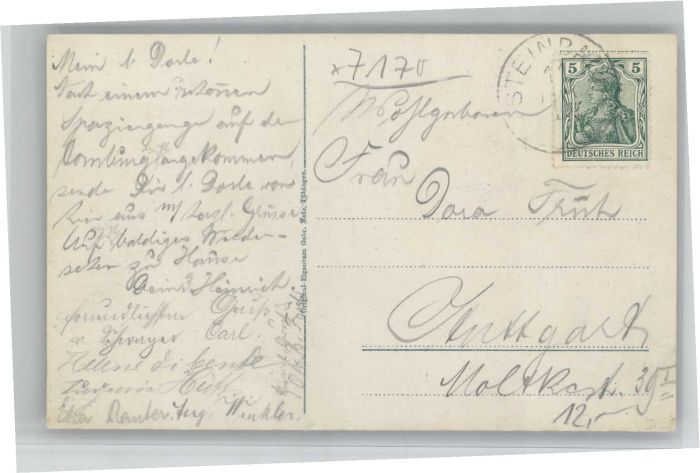 Mein l. Dorle!
Nach einem schönen
Spaziergange auf die
Comburg angekommen,
sende Dir l. Dorle von
hier aus herzl. Grüsse
Auf baldiges Wieder-
sehen zu Hause
Dein Heinrich.
freundlichen Gruss
v. Schwager Carl.
Helene
Winkler.
Original-Eigentum Gebr. Metz, Tübingen.
x7170
STEIND
5 5
DEUTSCHES REICH
Wohlgeboren
Frau
Dora Früh
Stuttgart
Moltkest. 39 I
12,-